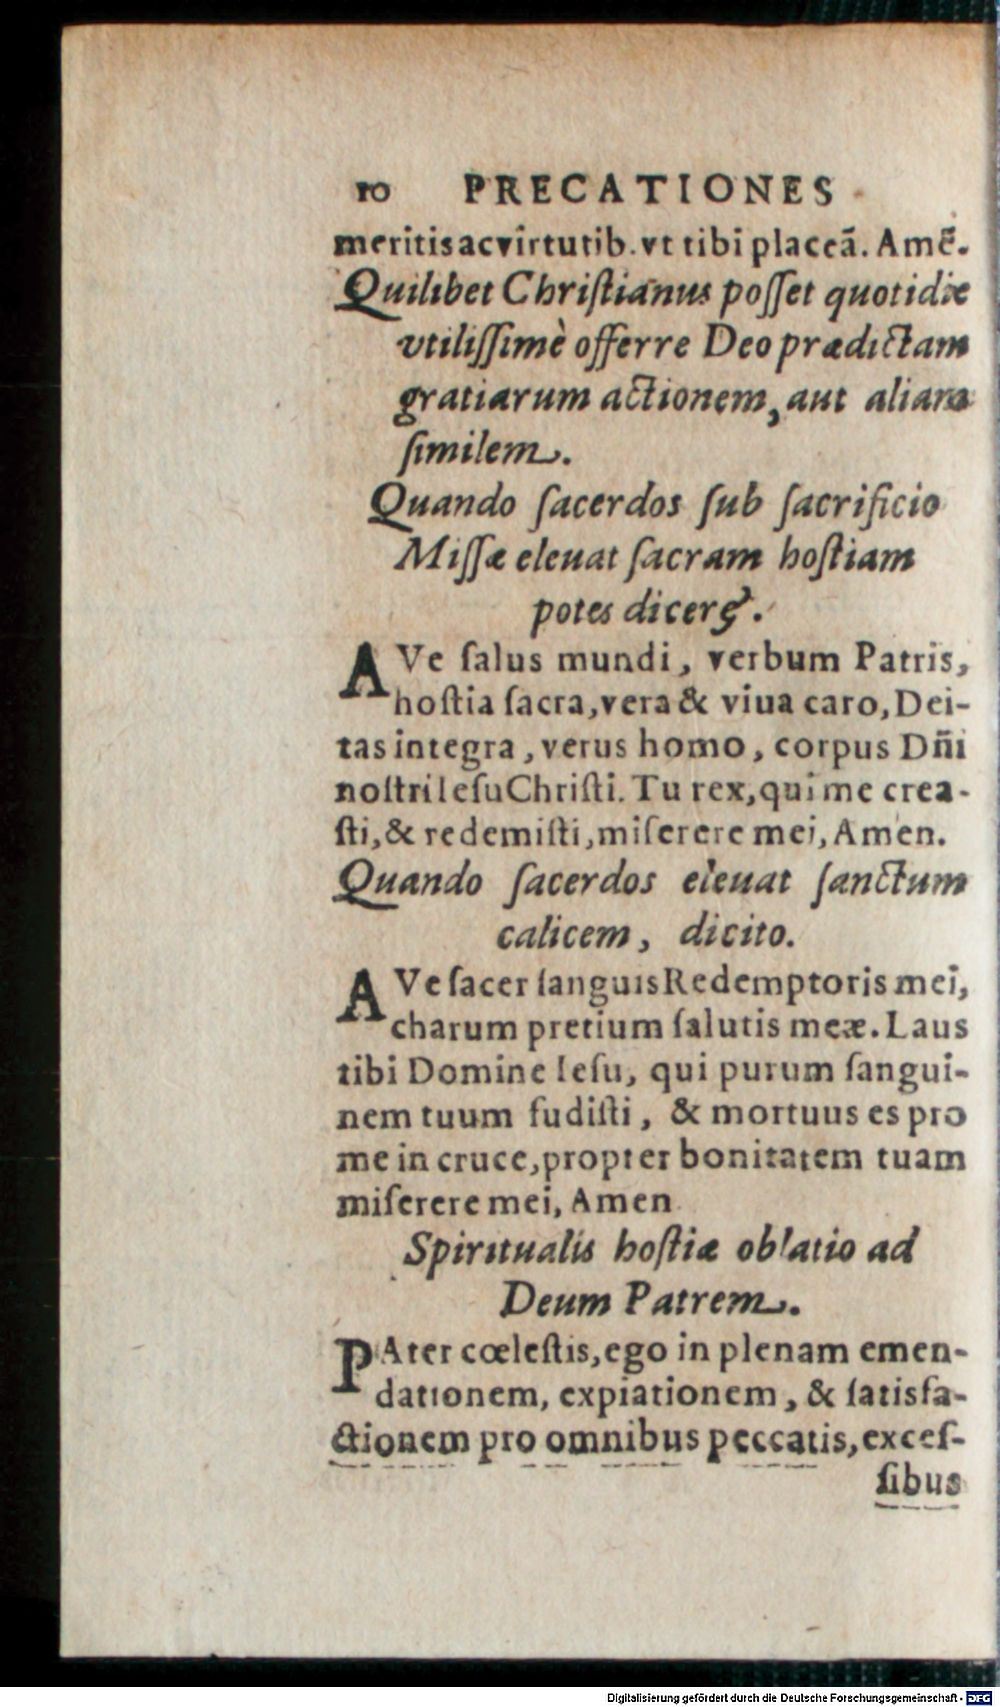 10 PRECATIONES
meritis ac virtutib. vt tibi placeā. Amē.
Quilibet Chriſtianus poſſet quotidie
vtiliſſimè offerre Deo prædictam
gratiarum actionem, aut aliam
ſimilem.
Quando ſacerdos ſub ſacrificio
Miſſæ eleuat ſacram hoſtiam
potes dicere.
AVe ſalus mundi, verbum Patris,
hoſtia ſacra, vera & viua caro, Dei-
tas integra, verus homo, corpus Dñi
noſtri Ieſu Chriſti. Tu rex, qui me crea-
ſti, & redemiſti, miſerere mei, Amen.
Quando ſacerdos eleuat ſanctum
calicem, dicito.
AVe ſacer ſanguis Redemptoris mei,
charum pretium ſalutis meæ. Laus
tibi Domine Ieſu, qui purum ſangui-
nem tuum fudiſti, & mortuus es pro
me in cruce, propter bonitatem tuam
miſerere mei, Amen
Spiritualis hoſtiæ oblatio ad
Deum Patrem.
PAter cœleſtis, ego in plenam emen-
dationem, expiationem, & ſatisfa-
ctionem pro omnibus peccatis, exceſ-
ſibus
Digitalisierung gefördert durch die Deutsche Forschungsgemeinschaft - DFG